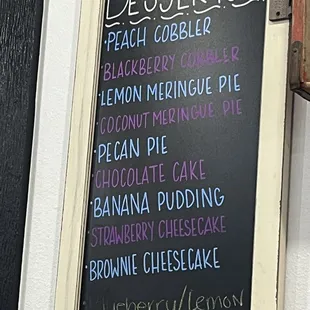 DESSERTS
·PEACH COBBLER
·BLACKBERRY COBBLER
·LEMON MERINGUE PIE
·COCONUT MERINGUE PIE
·PECAN PIE
·CHOCOLATE CAKE
·BANANA PUDDING
·STRAWBERRY CHEESECAKE
·BROWNIE CHEESECAKE
/Lemon